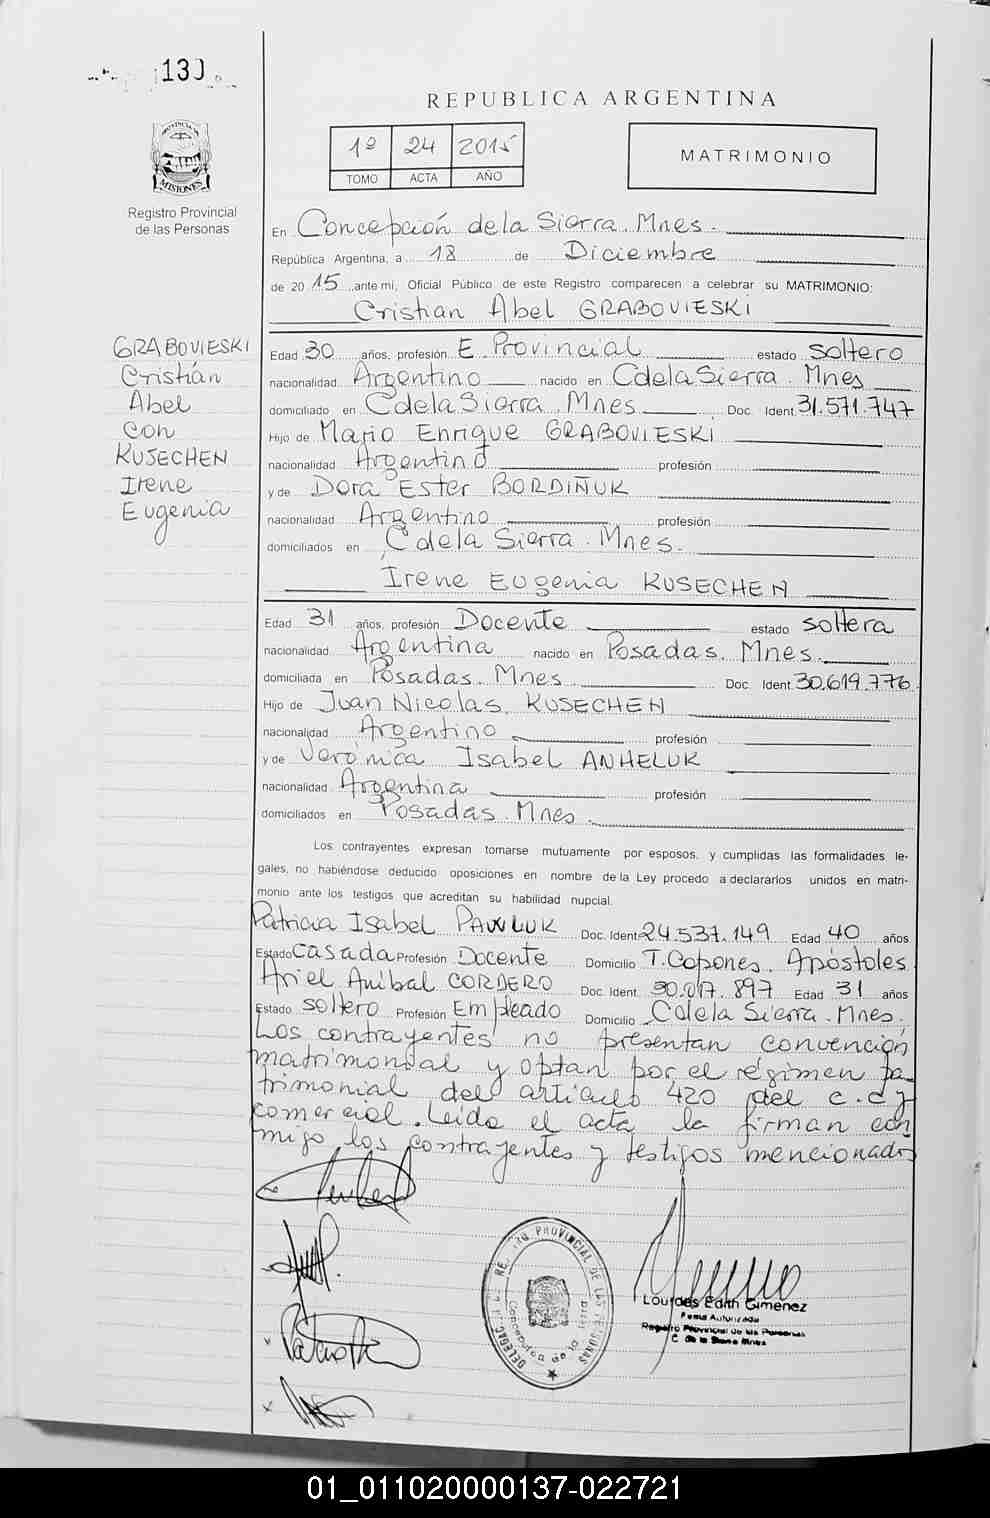 130
REPUBLICA ARGENTINA
1º 24 2015
TOMO ACTA AÑO
MATRIMONIO
PROVINCIA DE
MISIONES
Registro Provincial
de las Personas
En Concepción de la Sierra. Mnes.
República Argentina, a 18 de Diciembre
de 20 15 ante mi, Oficial Público de este Registro comparecen a celebrar su MATRIMONIO:
Cristian Abel GRABOVIESKI
GRABOVIESKI
Cristian
Abel
con
KUSECHEN
Irene
Eugenia
Edad 30 años, profesión E. Provincial estado soltero
nacionalidad Argentino nacido en C de la Sierra. Mnes
domiciliado en C de la Sierra. Mnes Doc. Ident. 31.571.747
Hijo de Mario Enrique GRABOVIESKI
nacionalidad Argentino profesión
y de Dora Ester BORDIÑUK
nacionalidad Argentino profesión
domiciliados en C de la Sierra. Mnes.
Irene Eugenia KUSECHEN
Edad 31 años, profesión Docente estado soltera
nacionalidad Argentina nacido en Posadas. Mnes.
domiciliada en Posadas. Mnes Doc. Ident. 30.619.776
Hijo de Juan Nicolas. KUSECHEN
nacionalidad Argentino profesión
y de Verónica Isabel ANHELUK
nacionalidad Argentina profesión
domiciliados en Posadas. Mnes.
Los contrayentes expresan tomarse mutuamente por esposos, y cumplidas las formalidades le-
gales, no habiéndose deducido oposiciones en nombre de la Ley procedo a declararlos unidos en matri-
monio ante los testigos que acreditan su habilidad nupcial.
Patricia Isabel PAWLUK Doc. Ident. 24.537.149 Edad 40 años
Estado Casada Profesión Docente Domicilio T. Capones. Apóstoles
Ariel Anibal CORDERO Doc. Ident. 30.017.897 Edad 31 años
Estado soltero Profesión Empleado Domicilio C de la Sierra. Mnes.
Los contrayentes no presentan convención
matrimonial y optan por el régimen pa
trimonial del artículo 420 del c.c y
comercial. Leida el acta la firman con
migo los contrayentes y testigos mencionados
DELEGAC. DE REGISTRO PROVINCIAL DE LAS PERSONAS
Concepción de la Sierra
Lourdes Edith Gimenez
Firma Autorizada
Registro Provincial de las Personas
C. de la Sierra Mnes
01_011020000137-022721